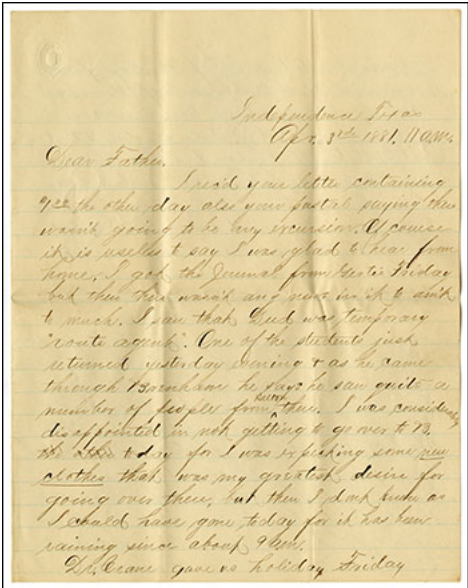 Independence Texas
Apr. 3rd 1881. 11 a.m.
Dear Father.
I rec'd your letter containing
the other day also your postal saying there
wasn't going to be any excursion. Of course
it is useless to say I was glad to hear from
home. I got the Journal from Friday
but then there wasn't any news in it to am't
to much. I saw that was temporary
"route agent". One of the students just
returned yesterday evening & as he came
through Brenham he says he saw quite a
number of people from there. I was considerably
disappointed in not getting to go over to B.
today for I was expecting some new
clothes that was my greatest desire for
going over there, but then I don't know as
I could have gone today for it has been
raining since about 9 a.m.
Dr. Crane gave us holiday Friday